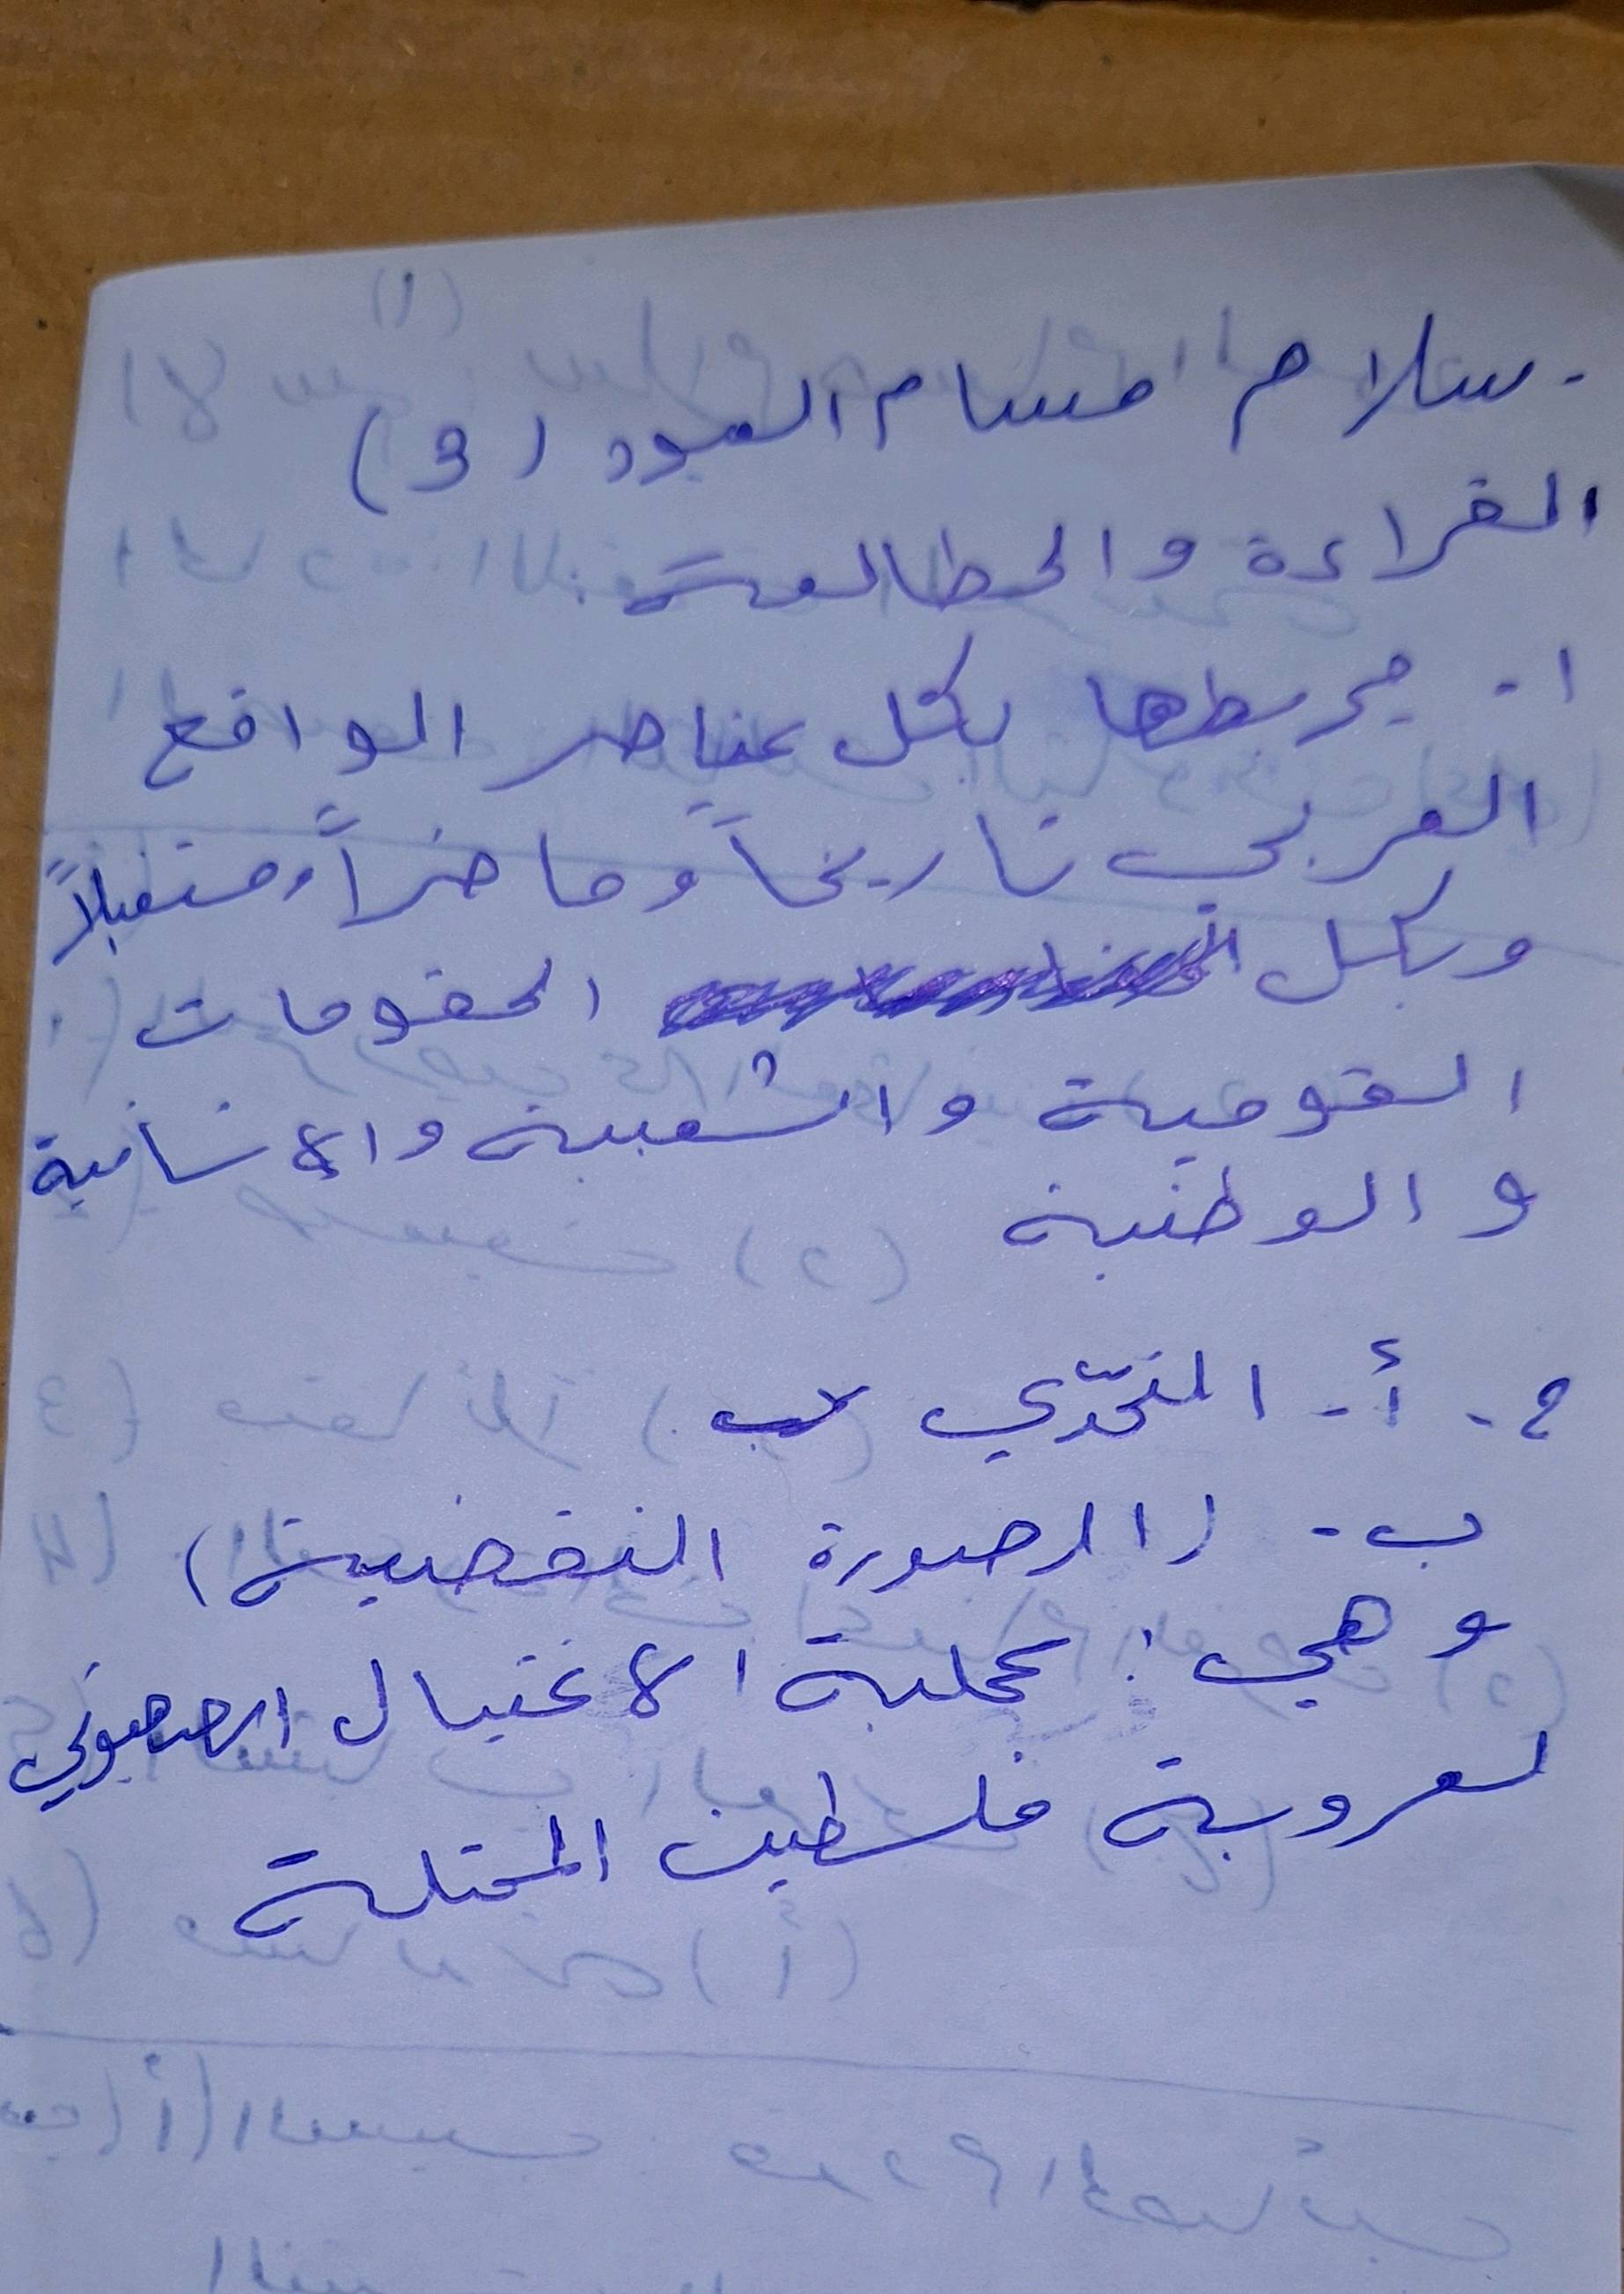 - سلام حسام العبود (3)
القراءة والمطالعة
1- يربطها بكل عناصر الواقع
العربي تاريخاً وحاضراً ومستقبلاً
وبكل المقومات
القومية والشعبية والإنسانية
والوطنية
2- أ- التحدّي
ب- (الصورة النقضية)
وهي: عملية الاغتيال الصهيوني
لعروبة فلسطين المحتلة